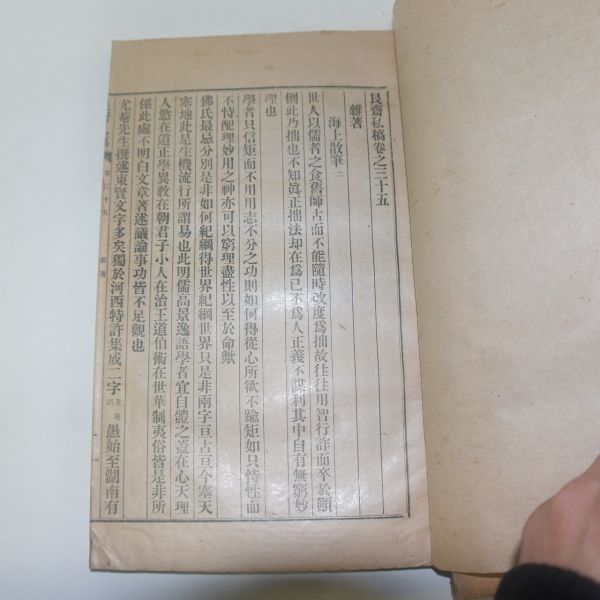 艮齋私稿卷之三十五
雜著
海上散筆二
世人以儒者之食舊師古而不能隨時改度爲拙故往往用智行詐而卒於顚
倒此乃拙也不知眞正拙法却在爲己不爲人正義不謀利其中自有無窮妙
理也
學者只信矩而不用用志不分之功則如何得從心所欲不踰矩如只恃性而
不恃配理妙用之神亦可以窮理盡性以至於命歟
佛氏最忌分別是非如何紀綱得世界紀綱世界只是非兩字亘古亘今塞天
塞地此是生機流行所謂易也此明儒高景逸語學者宜自體之蓋在心天理
人慾在道正學異敎在朝君子小人在治王道伯術在世華制夷俗皆是非所
係此處不明白文章著述議論事功皆不足觀也
尤菴先生撰述東賢文字多矣獨於河西特許集成二字 愚始至湖南有